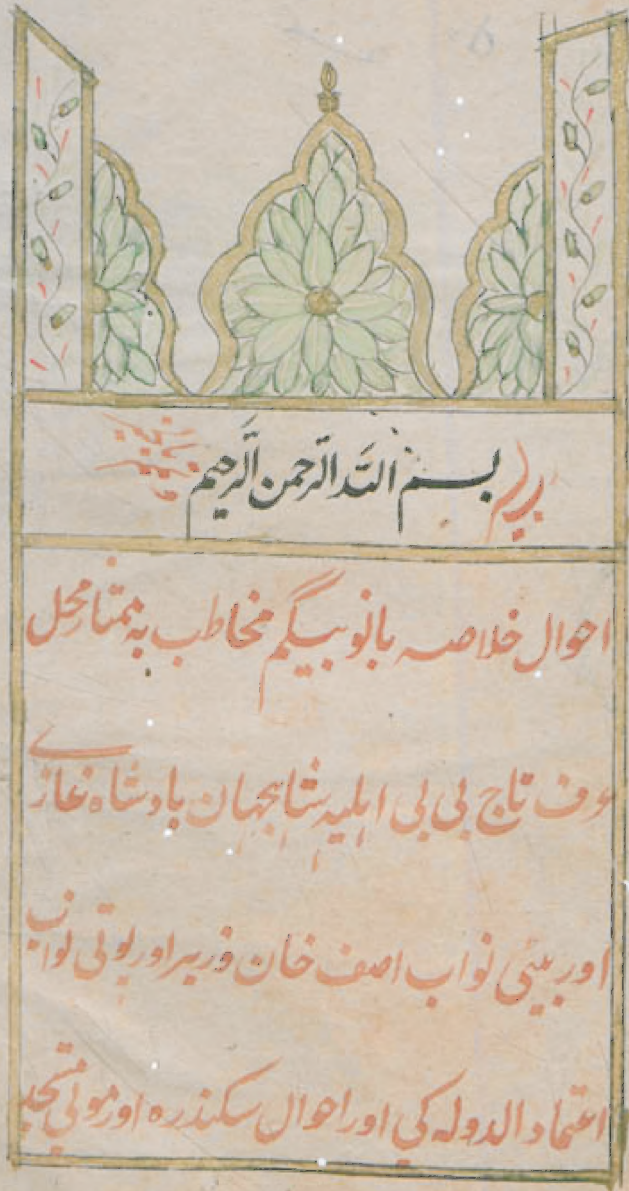 بسم اللہ الرحمن الرحیم
احوال خلاصہ بانو بیگم مخاطب بہ ممتاز محل
عرف تاج بی بی اہلیہ شاہجہان بادشاہ غازے
اور بیٹی نواب اصف خان وزیر اور پوتی نواب
اعتماد الدولہ کی اور احوال سکندرہ اور موتی مسجد